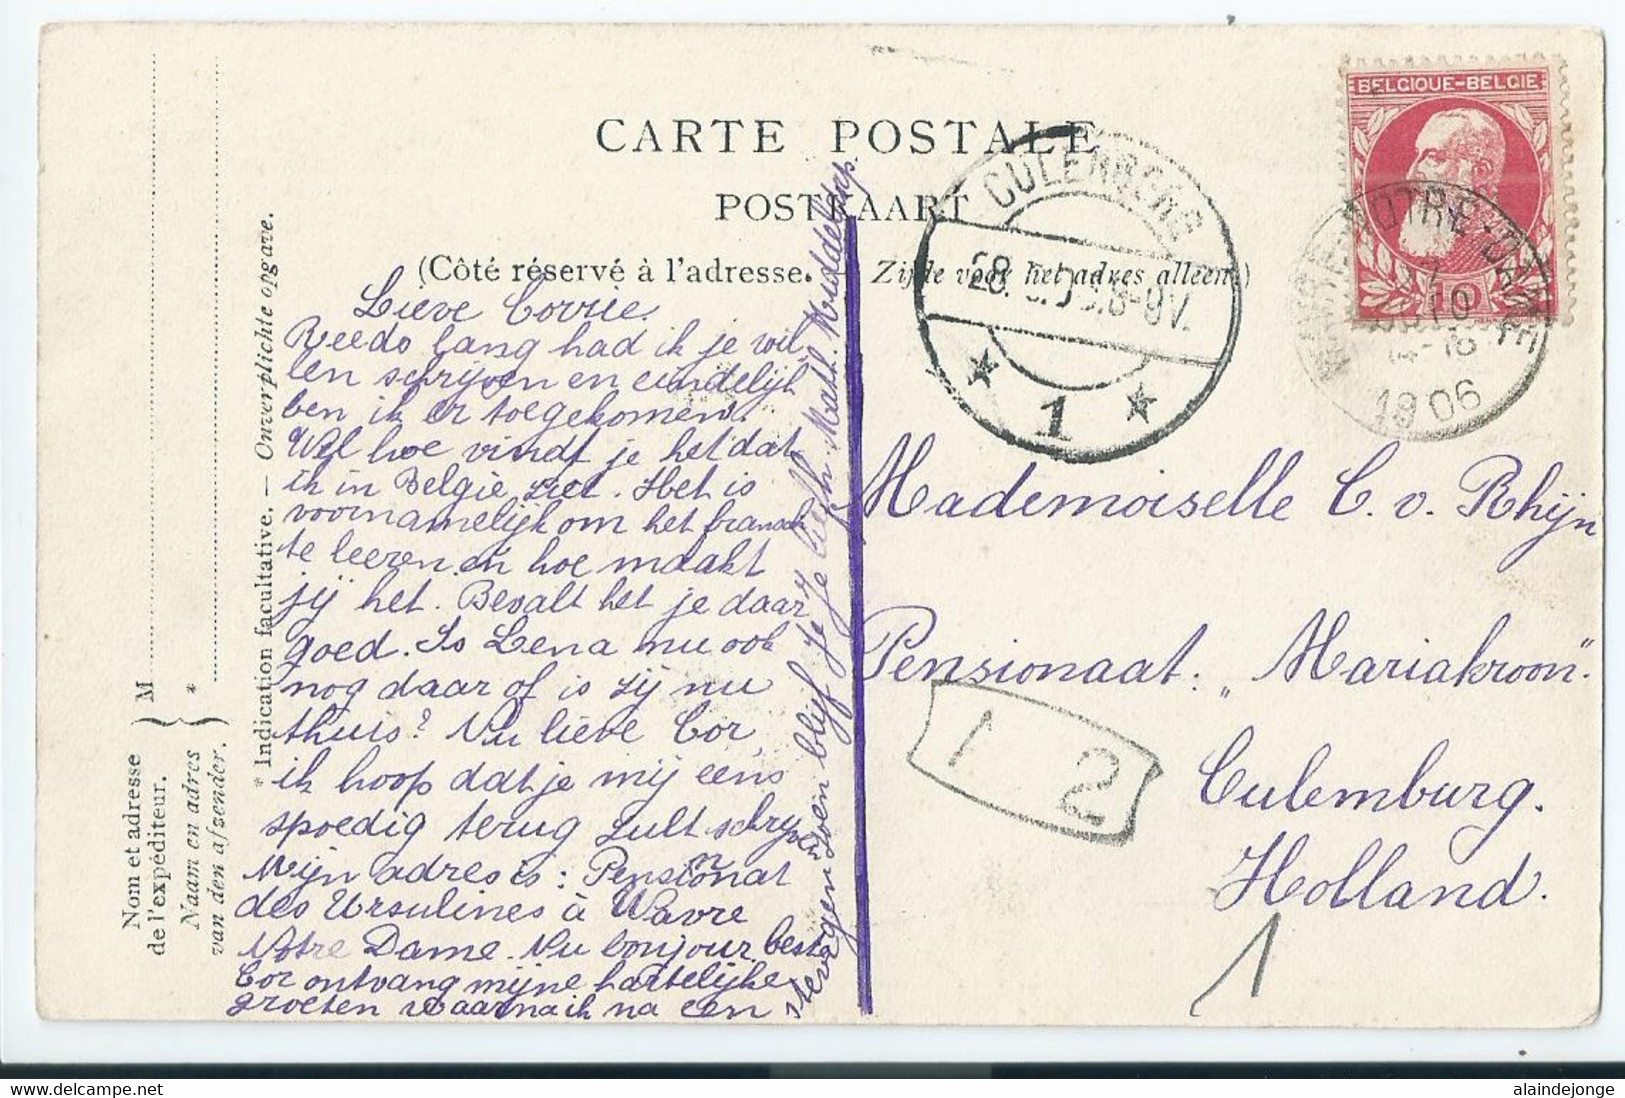 CARTE POSTALE
POSTKAART
(Côté réservé à l'adresse. — Zijde voor het adres alleen.)
BELGIQUE-BELGIE
10
WAVRE-NOTRE-DAME
27
10
14-15
1906
CULEMBORG
28. 8-9V.
1
Nom et adresse
de l'expéditeur.
Naam en adres
van den afzender.
M
*
* Indication facultative. — Onverplichte opgave.
Lieve Corrie.
Reeds lang had ik je wil
len schrijven en eindelijk
ben ik er toegekomen.
Wel hoe vindt je het dat
ik in België zit. Het is
voornamelijk om het fransch
te leeren en hoe maakt
jij het. Bevalt het je daar
goed. Is Lena nu ook
nog daar of is zij nu
thuis? Nu lieve Cor,
ik hoop dat je mij eens
spoedig terug zult schryven
Mijn adres is: Pensionnat
des Ursulines à Wavre
Notre Dame. Nu bonjour beste
Cor ontvang mijne hartelijke
groeten waarna ik na een
stevigen zoen blijf je je liefh. Math. Middelkamp
Mademoiselle C. v. Rhijn
Pensionaat: „Mariakroon".
Culemburg.
Holland.
1 2
1
alaindejonge